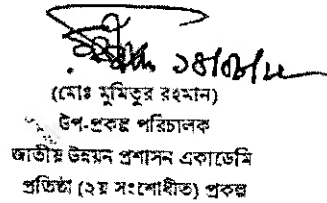 ১৪/০৮/২২
(মোঃ মুমিতুর রহমান)
উপ-প্রকল্প পরিচালক
জাতীয় উন্নয়ন প্রশাসন একাডেমি
প্রতিষ্ঠা (২য় সংশোধীত) প্রকল্প